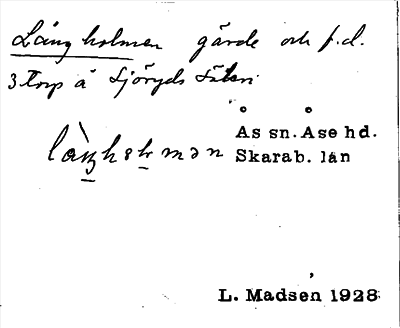 Långholmen gärde och f.d.
3 torp å Sjöryds
Ås sn. Åse hd.
Skarab. län
L. Madsen 1928